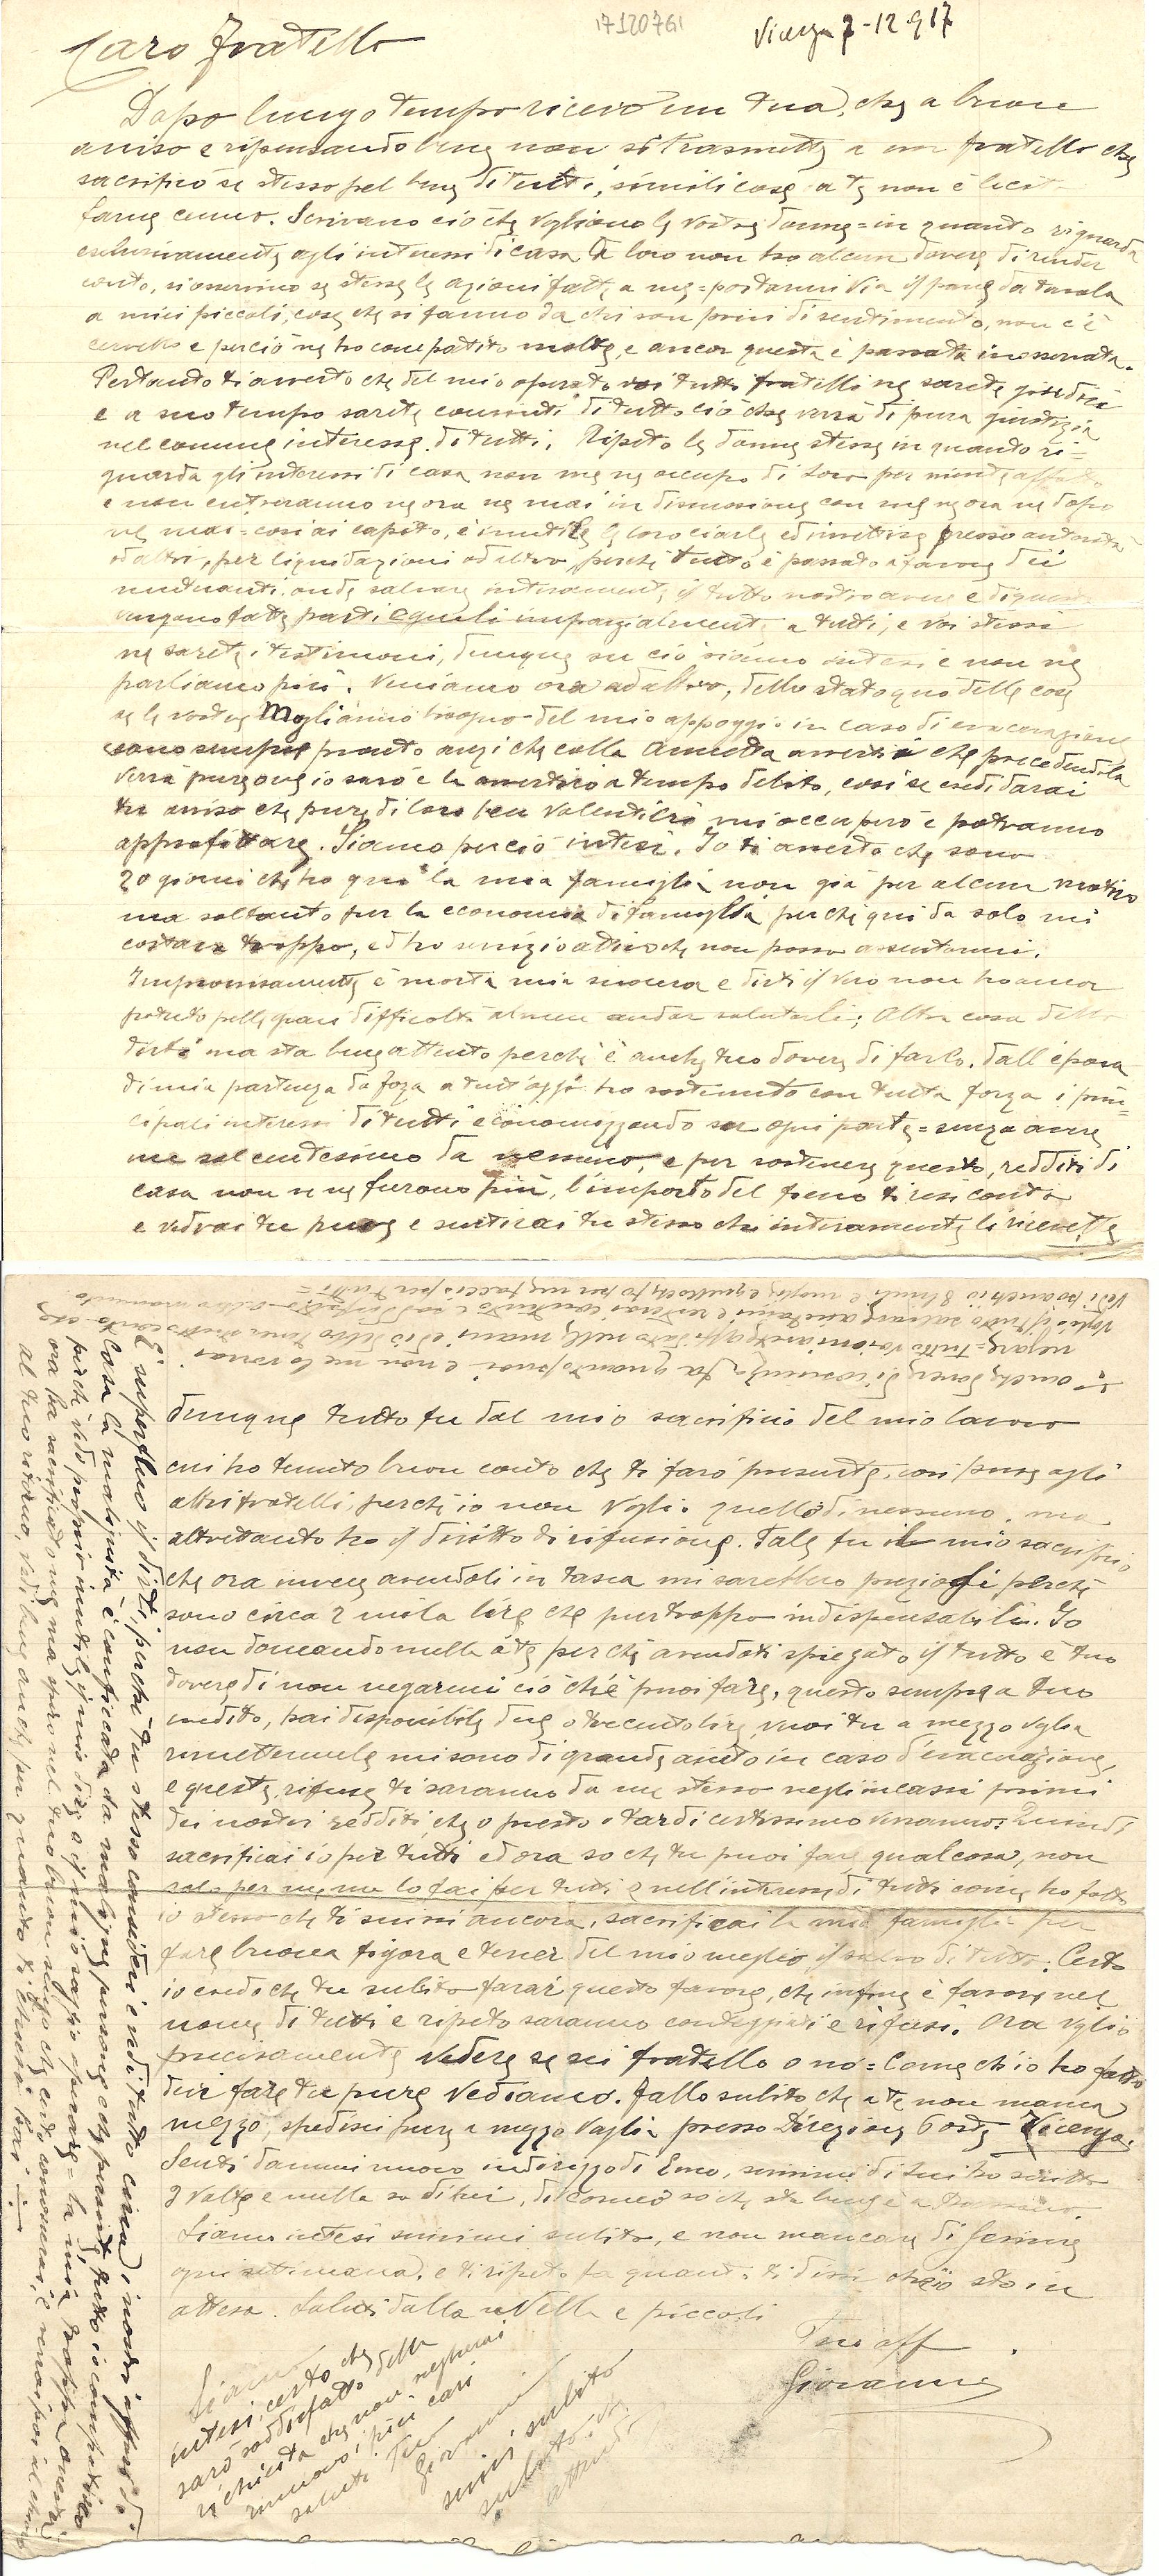 17120761
Vicenza 7-12-917
Caro fratello
Dopo lungo tempo ricevo un tua, che a buon
aviso e ripensando bene non si trasmette a un fratello che
sacrificò se stesso pel bene di tutti, simili cose a te non è lecit
farne cenno. Scrivano ciò che vogliono le vostre donne = in quanto riguarda
esclusivamente agli interessi di casa a loro non ho alcun dovere di render
conto, si osservino se stesse le azioni fatte a me = portarmi via il pane da tavola
a miei piccoli, cose che si fanno da chi son privi di sentimento, non c'è
cervello e perciò ne ho compatito molte, e ancor questa è passata inosservata.
Pertanto ti averto che del mio operato voi tutti fratelli ne sarete giudici
e a suo tempo sarete convinti di tutto ciò che verrà di pura giustizia
nel comune interesse di tutti. Ripeto le donne stesse in quanto ri=
guarda gli interessi di casa non me ne occupo di loro per niente affatto
e non entreranno ne ora ne mai in discussione con me ne ora ne dopo
ne mai = così ai capito, è inutile le loro ciarle ed inoltrirse presso autorità
od altri, per liquidazioni od altro, perchè tutto è passato a favore dei
onde salvare interamente il tutto nostro avere e di questo
vengono fatte parti eguali imparzialmente a tutti, e voi stessi
ne sarete i testimoni, dunque su ciò siamo intesi e non ne
parliamo più. Veniamo ora ad altro, dello stato quo delle cose
se le vostre Mogli anno bisogno del mio appoggio in caso di evacuazione
sono sempre pronto anzi che colla Annetta avertii che precedendola
verrà pure ove io sarò e la avertirò a tempo debito, così se credi darai
tu aviso che pure di loro ben volentieri mi occuperò e potranno
approfittare. Siamo perciò intesi. Io ti averto che sono
20 giorni che ho qui la mia famiglia non già per alcun motivo
ma soltanto per la economia di famiglia perchè qui da solo mi
costava troppo, ed ho servizio attivo che non posso assentarmi.
Improvisamente è morta mia suocera e dirti il vero non ho ancor
potuto pelle gravi difficoltà almeno andar salutarli; Altra cosa devo
dirti ma sta bene attento perchè è anche tuo dovere di farlo. Dall'epoca
di mia partenza da Foza a tutt'oggi ho sostenuto con tutta forza i prin=
cipali interessi di tutti economizzando su ogni parte = senza avere
un sol centessimo da nessuno, e per sostenere questo, redditi di
casa non ve ne furono più, l'importo del fieno ti resi conto
e vedrai tu pure e sentirai tu stesso chi interamente li ricevette
è anche dovere di fa quanto puoi e non me lo vorrai
negare = tutto
Voglio il tutto salvare
dunque tutto fu dal mio sacrificio del mio lavoro
cui ho tenuto buon conto che ti farò presente, così pure agli
altri fratelli, perchè io non voglio quello di nessuno, ma
altretanto ho il diritto di rifusione. Tale fu il mio sacrificio
che ora invece avendoli in tasca mi sarebbero preziosi perchè
sono circa 2 mila lire che purtroppo indispensabili. Io
non domando nulla a te perchè avendoti spiegato il tutto è tuo
dovere di non negarmi ciò che puoi fare, questo sempre a tuo
credito, hai disponibile due o trecento lire, vuoi tu a mezzo vaglia
rimettermele mi sono di grande aiuto in caso d'evacuazione,
e queste rifuse ti saranno da me stesso negli incassi primi
dei nostri redditi, che o presto o tardi certissimo verranno: Quindi
sacrificai io per tutti ed ora so che tu puoi fare qualcosa, non
solo per me, ma lo fai per tutti e nell'interesse di tutti come ho fatto
io stesso che ti scrissi ancora, sacrificai la mia famiglia per
fare buona figura e tener del mio meglio il salvo di tutto. Certo
io credo che tu subito farai questo favore, che infine è favore nel
nome di tutti e ripeto saranno conteggiati e rifusi. Ora voglio
precisamente vedere se sei fratello o no = Come ch'io ho fatto
devi fare tu pure vediamo. Fallo subito che a te non manca
mezzo, spedisci pure a mezzo vaglia presso Direzione Poste Vicenza.
Senti dammi nuovo indirizzo di Emo, scrivimi di lui ho scritto
2 volte e nulla so di lui, di so che sta bene è a
Siamo intesi scrivimi subito, e non mancare di scrivere
ogni settimana. e ti ripeto fa quanto ti dissi ch'io sto in
attesa. Saluti dalla e piccoli
Tuo aff
Giovanni
Siamo
intesi, certo che
sarò soddisfatto della
richiesta che non negherai
rinnovo i più cari
saluti Tuo
Giovanni
scrivi subito
subito
attendo
È superfluo il dirti, perchè tu stesso consideri e vedi tutto come i nostri affari di
Casa la malignità è conficcata da maligne persone e che perciò tutto io compatisco
perchè vedo proprio inutile il mio dire o il mio saggio operare = la mia troppa onestà
ora ha sacrificato me ma spero nel tuo buon senso che certo conoscerai, e verrai poi al chiaro
al tuo ritorno, vedi bene anche per quando ti chiesi